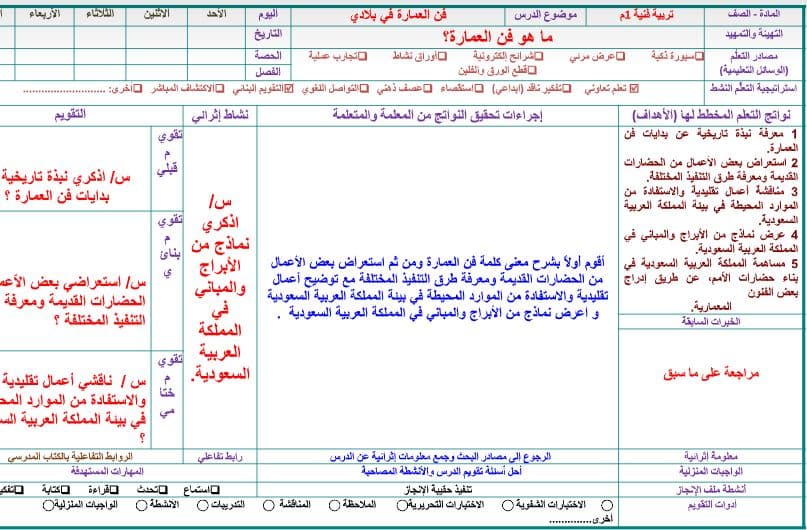 المادة - الصف
تربية فنية 1م
موضوع الدرس
فن العمارة في بلادي
اليوم
الأحد
الاثنين
الثلاثاء
الأربعاء
التهيئة والتمهيد
ما هو فن العمارة؟
التاريخ
مصادر التعلم
(الوسائل التعليمية)
❑سبورة ذكية ❑عرض مرئي ❑شرائح إلكترونية ❑أوراق نشاط ❑تجارب عملية
❑قطع الورق والفلين
الحصة
الفصل
استراتيجية التعلم النشط
☑ تعلم تعاوني ❑تفكير ناقد (ابداعي) ❑استقصاء ❑عصف ذهني ❑التواصل اللغوي ☑التقويم البنائي ❑الاكتشاف المباشر ❑اخرى: ............................
نواتج التعلم المخطط لها (الأهداف)
إجراءات تحقيق النواتج من المعلمة والمتعلمة
نشاط إثرائي
التقويم
1 معرفة نبذة تاريخية عن بدايات فن
العمارة.
2 استعراض بعض الأعمال من الحضارات
القديمة ومعرفة طرق التنفيذ المختلفة.
3 مناقشة أعمال تقليدية والاستفادة من
الموارد المحيطة في بيئة المملكة العربية
السعودية.
4 عرض نماذج من الأبراج والمباني في
المملكة العربية السعودية.
5 مساهمة المملكة العربية السعودية في
بناء حضارات الأمم، عن طريق إدراج
بعض الفنون
المعمارية.
الخبرات السابقة
مراجعة على ما سبق
أقوم أولاً بشرح معنى كلمة فن العمارة ومن ثم استعراض بعض الأعمال
من الحضارات القديمة ومعرفة طرق التنفيذ المختلفة مع توضيح أعمال
تقليدية والاستفادة من الموارد المحيطة في بيئة المملكة العربية السعودية
و اعرض نماذج من الأبراج والمباني في المملكة العربية السعودية .
س/
اذكري
نماذج من
الأبراج
والمباني
في
المملكة
العربية
السعودية.
تقوي
م
قبلي
س/ اذكري نبذة تاريخية
بدايات فن العمارة ؟
تقوي
م
بنائ
ي
س/ استعراضي بعض الأعم
الحضارات القديمة ومعرفة
التنفيذ المختلفة ؟
تقوي
م
ختا
مي
س / ناقشي أعمال تقليدية
والاستفادة من الموارد المح
في بيئة المملكة العربية الس
؟
معلومة إثرائية
الرجوع إلى مصادر البحث وجمع معلومات إثرائية عن الدرس
رابط تفاعلي
الروابط التفاعلية بالكتاب المدرسي
الواجبات المنزلية
أحل أسئلة تقويم الدرس والأنشطة المصاحبة
المهارات المستهدفة
أنشطة ملف الإنجاز
تنفيذ حقيبة الإنجاز
❑استماع ❑تحدث ❑قراءة ❑كتابة ❑تفكي
أدوات التقويم
○ الاختبارات الشفوية ○ الاختبارات التحريرية○ الملاحظة ○ المناقشة ○ التدريبات ○ الأنشطة ○ الواجبات المنزلية○
أخرى...............